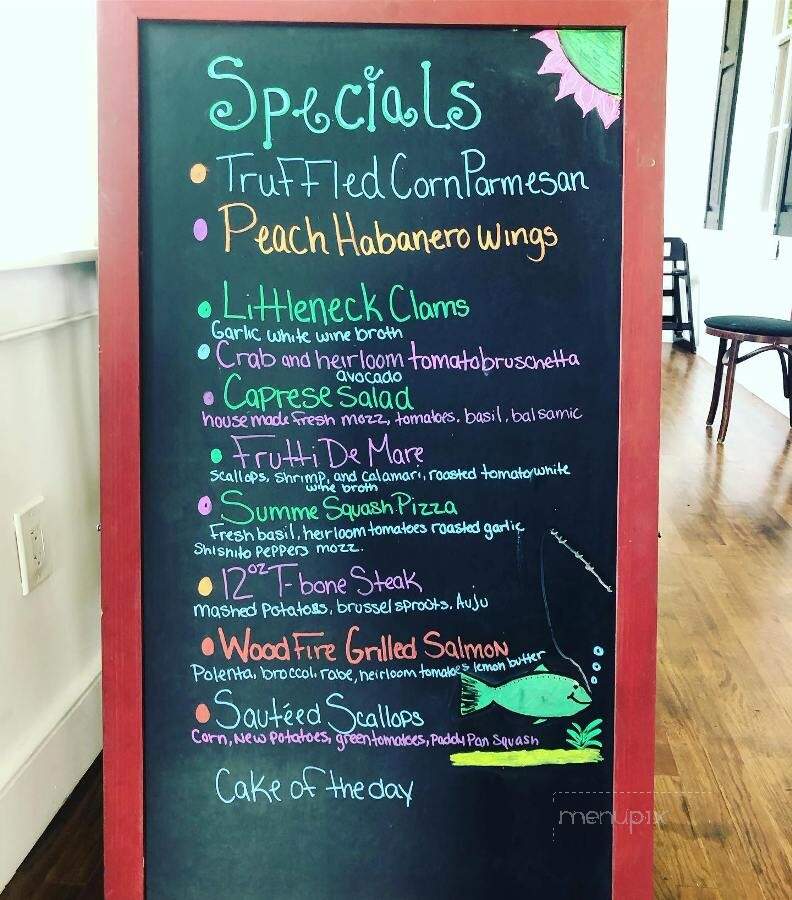 Specials
Truffled Corn Parmesan
Peach Habanero Wings
Littleneck Clams
Garlic white wine broth
Crab and heirloom tomato bruschetta
avocado
Caprese Salad
house made fresh mozz, tomatoes, basil, balsamic
Frutti De Mare
Scallops, shrimp, and calamari, roasted tomato white
wine broth
Summe Squash Pizza
Fresh basil, heirloom tomatoes roasted garlic
Shishito Peppers mozz.
12oz T-bone Steak
mashed Potatoes, brussel sprouts, Auju
Wood Fire Grilled Salmon
Polenta, broccoli rabe, heirloom tomatoes lemon butter
Sautéed Scallops
Corn, New Potatoes, green tomatoes, Paddy Pan Squash
Cake of the day
menupix